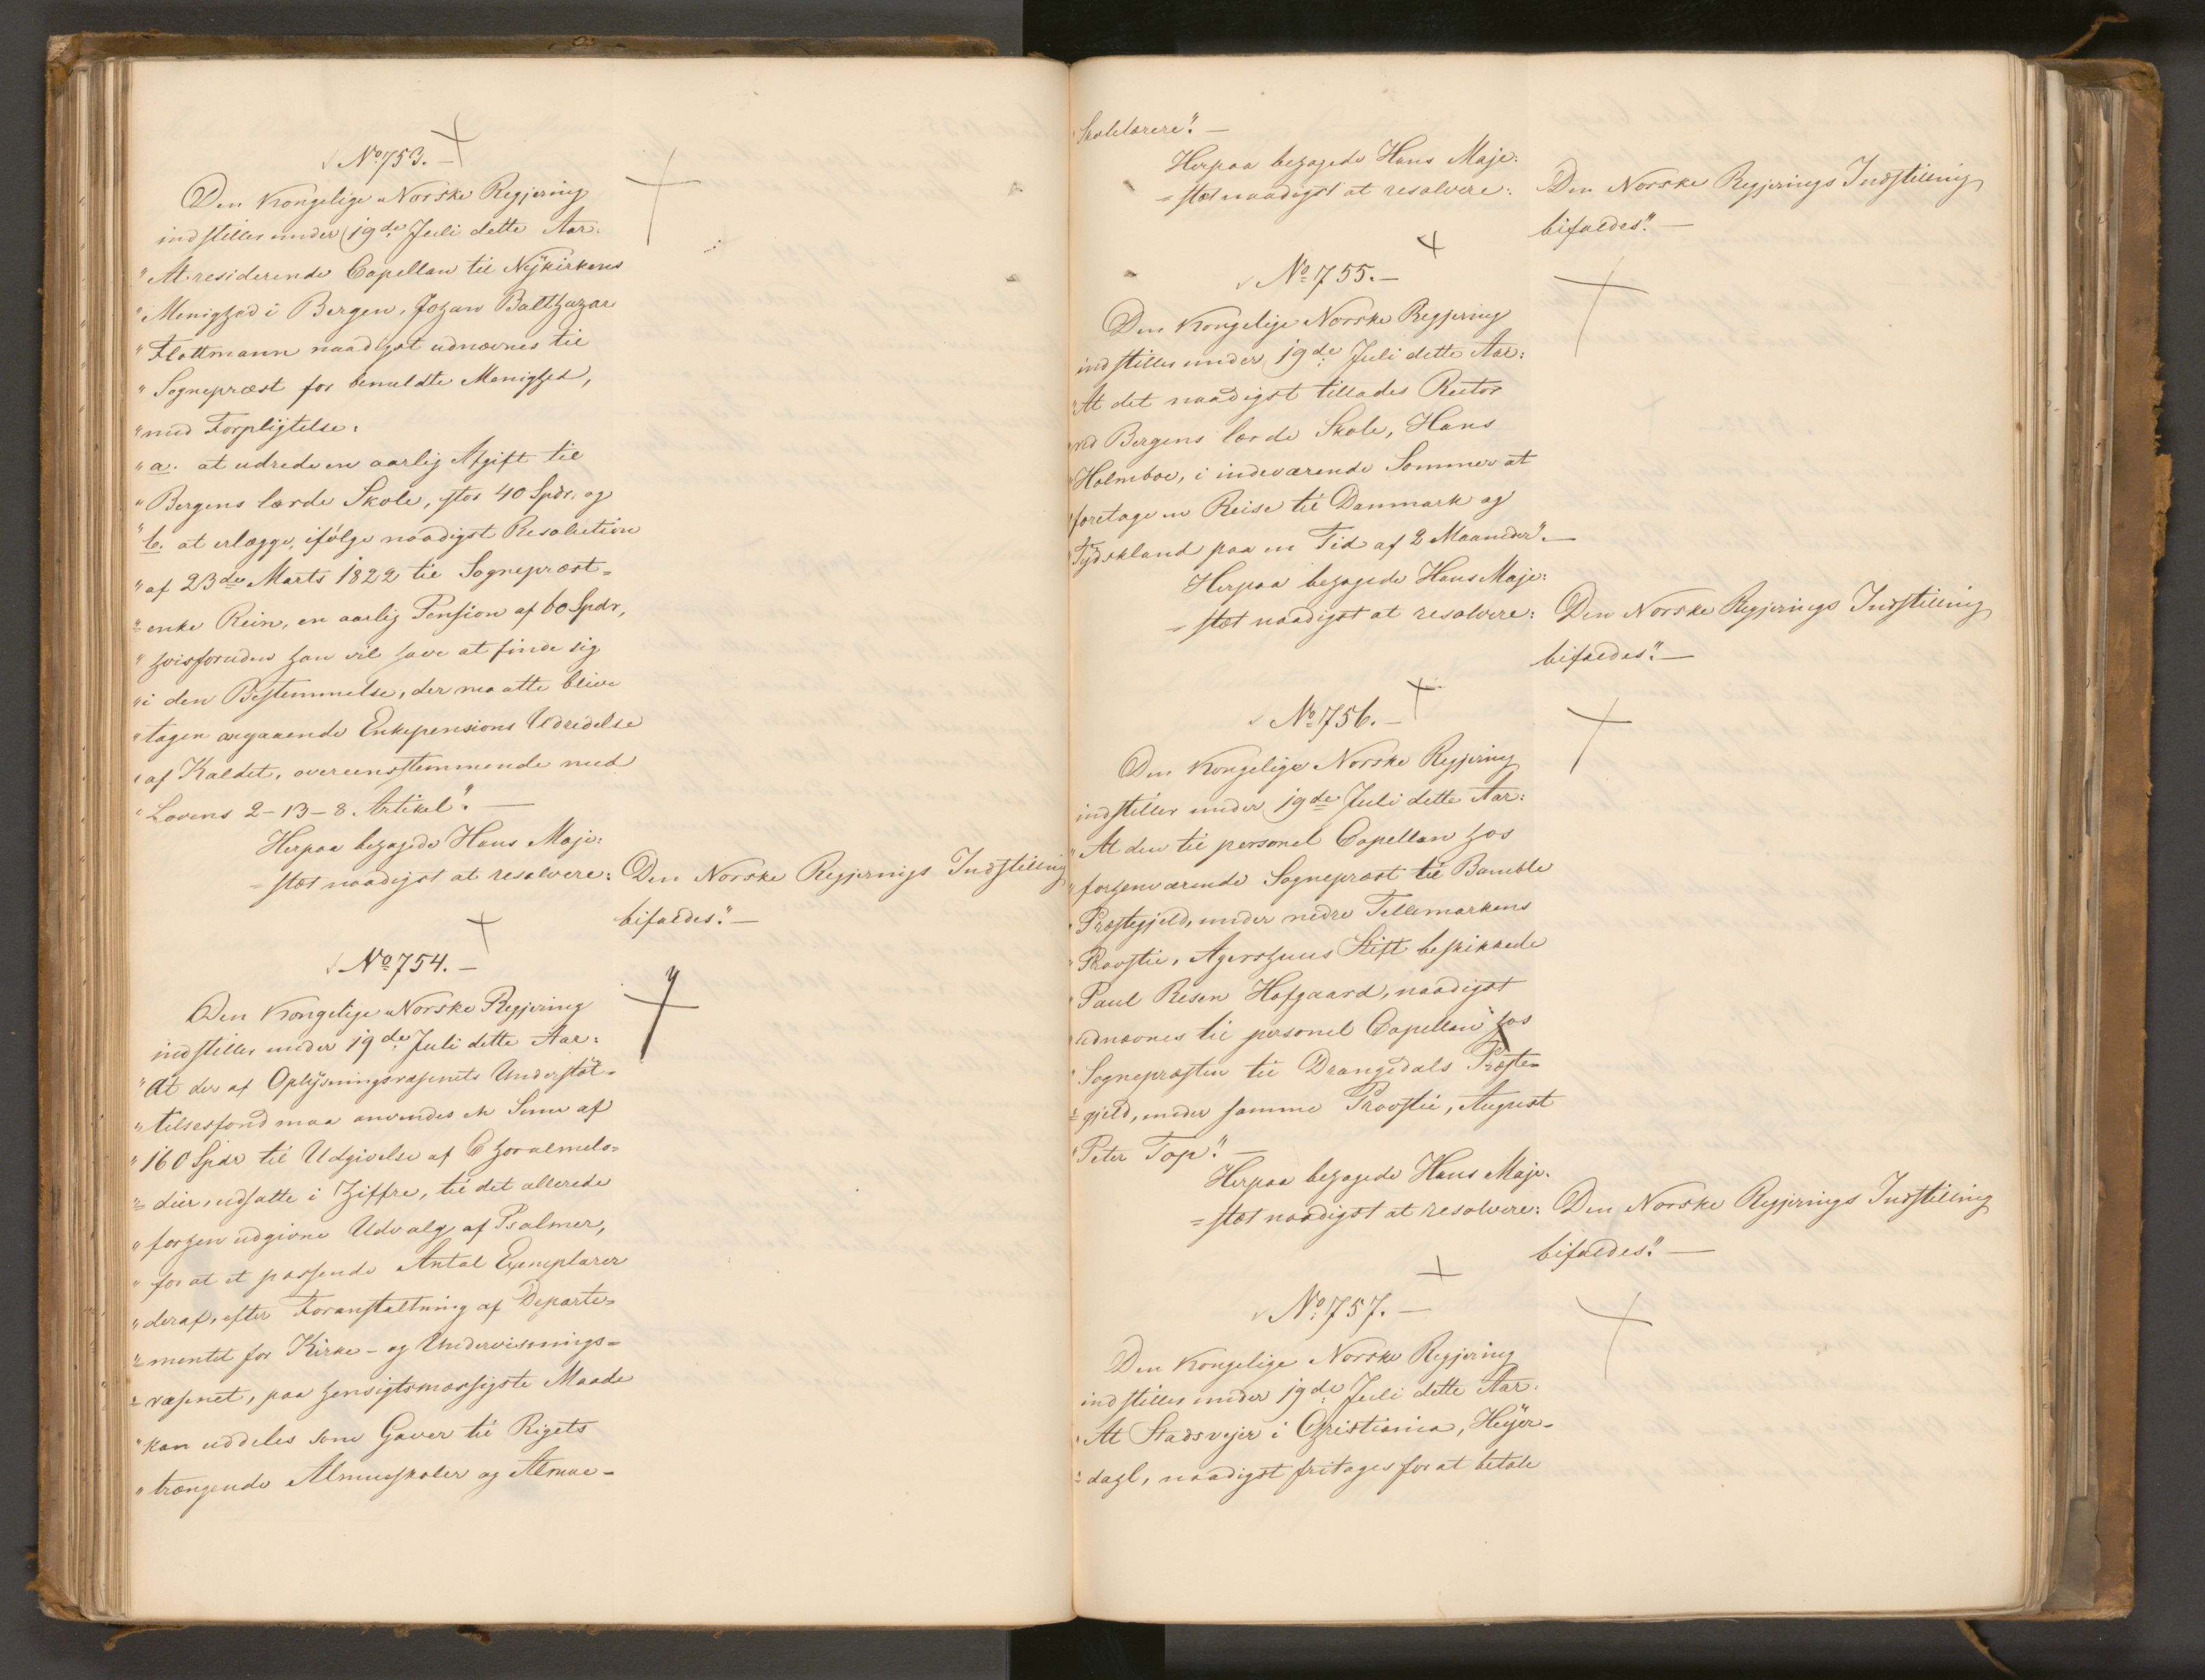 No 753. –
Den Kongelige Norske Regjering
indstiller under 19de Juli dette Aar:
"At residerende Capellan til Nykirkens
"Menighed i Bergen, Johan Balthazar
"Flottmann naadigst udnævnes til
"Sognepræst for bemeldte Menighed,
"med Forpligtelse:
"a. at udrede en aarlig Afgift til
"Bergens lærde Skole, stor 40 Spdr. og
"b. at erlægge, ifølge naadigst Resolution
"af 23de Marts 1822 til Sognepræst=
"enke Rein, en aarlig Pension af 60 Spdr,
"hvisforuden han vil have at finde sig
"i den Bestemmelse, der maatte blive
"tagen angaaende Enkepensions Udredelse
"af Kaldet, overeensstemmende med
"Lovens 2–13–8. Artikel". –
Herpaa behagede Hans Maje:
=stæt naadigst at resolvere: Den Norske Regjerings Indstilling
bifaldes". –
No 754. –
Den Kongelige Norske Regjering
indstiller under 19de Juli dette Aar:
"At der af Oplysningsvæsenets Understøt=
"telsesfond maa anvendes en Sum af
"160 Spdr til Udgivelse af Choralmelo=
"dier, udsatte i Ziffre, til det allerede
"forhen udgivne Udvalg af Psalmer,
"for at et passende Antal Exemplarer
"deraf, efter Foranstaltning af Departe=
"mentet for Kirke- og Underviisnings=
"væsenet, paa hensigtsmæssigste Maade
"kan uddeles som Gaver til Rigets
"trængende Almueskoler og Almue=
Skolelærere". –
Herpaa behagede Hans Maje:
=stæt naadigst at resolvere: Den Norske Regjerings Indstilling
bifaldes". –
No 755. –
Den Kongelige Norske Regjering
indstiller under 19de Juli dette Aar:
"At det naadigst tillades Rector
"ved Bergens lærde Skole, Hans
"Holmboe, i indeværende Sommer at
"foretage en Reise til Danmark og
"Tydskland paa en Tid af 2 Maaneder". –
Herpaa behagede Hans Maje:
=stæt naadigst at resolvere: Den Norske Regjerings Indstilling
bifaldes". –
No 756. –
Den Kongelige Norske Regjering
indstiller under 19de Juli dette Aar:
"At den til personel Capellan hos
"forhenværende Sognepræst til Bamble
"Præstegjeld, under nedre Tellemarkens
"Provstie, Agershuus Stift beskikkede
"Paul Resen Hofgaard, naadigst
"udnævnes til personel Capellan hos
"Sognepræsten til Drangedals Præste=
"gjeld, under samme Provstie, August
"Peter Top". –
Herpaa behagede Hans Maje:
=stæt naadigst at resolvere: Den Norske Regjerings Indstilling
bifaldes". –
No 757. –
Den Kongelige Norske Regjering
indstiller under 19de Juli dette Aar:
"At Stadsveier i Christiania, Heyer=
"dahl, naadigst fritages for at betale